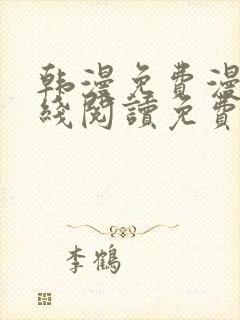 韩漫免費漫
綫閱讀免費
李鶴